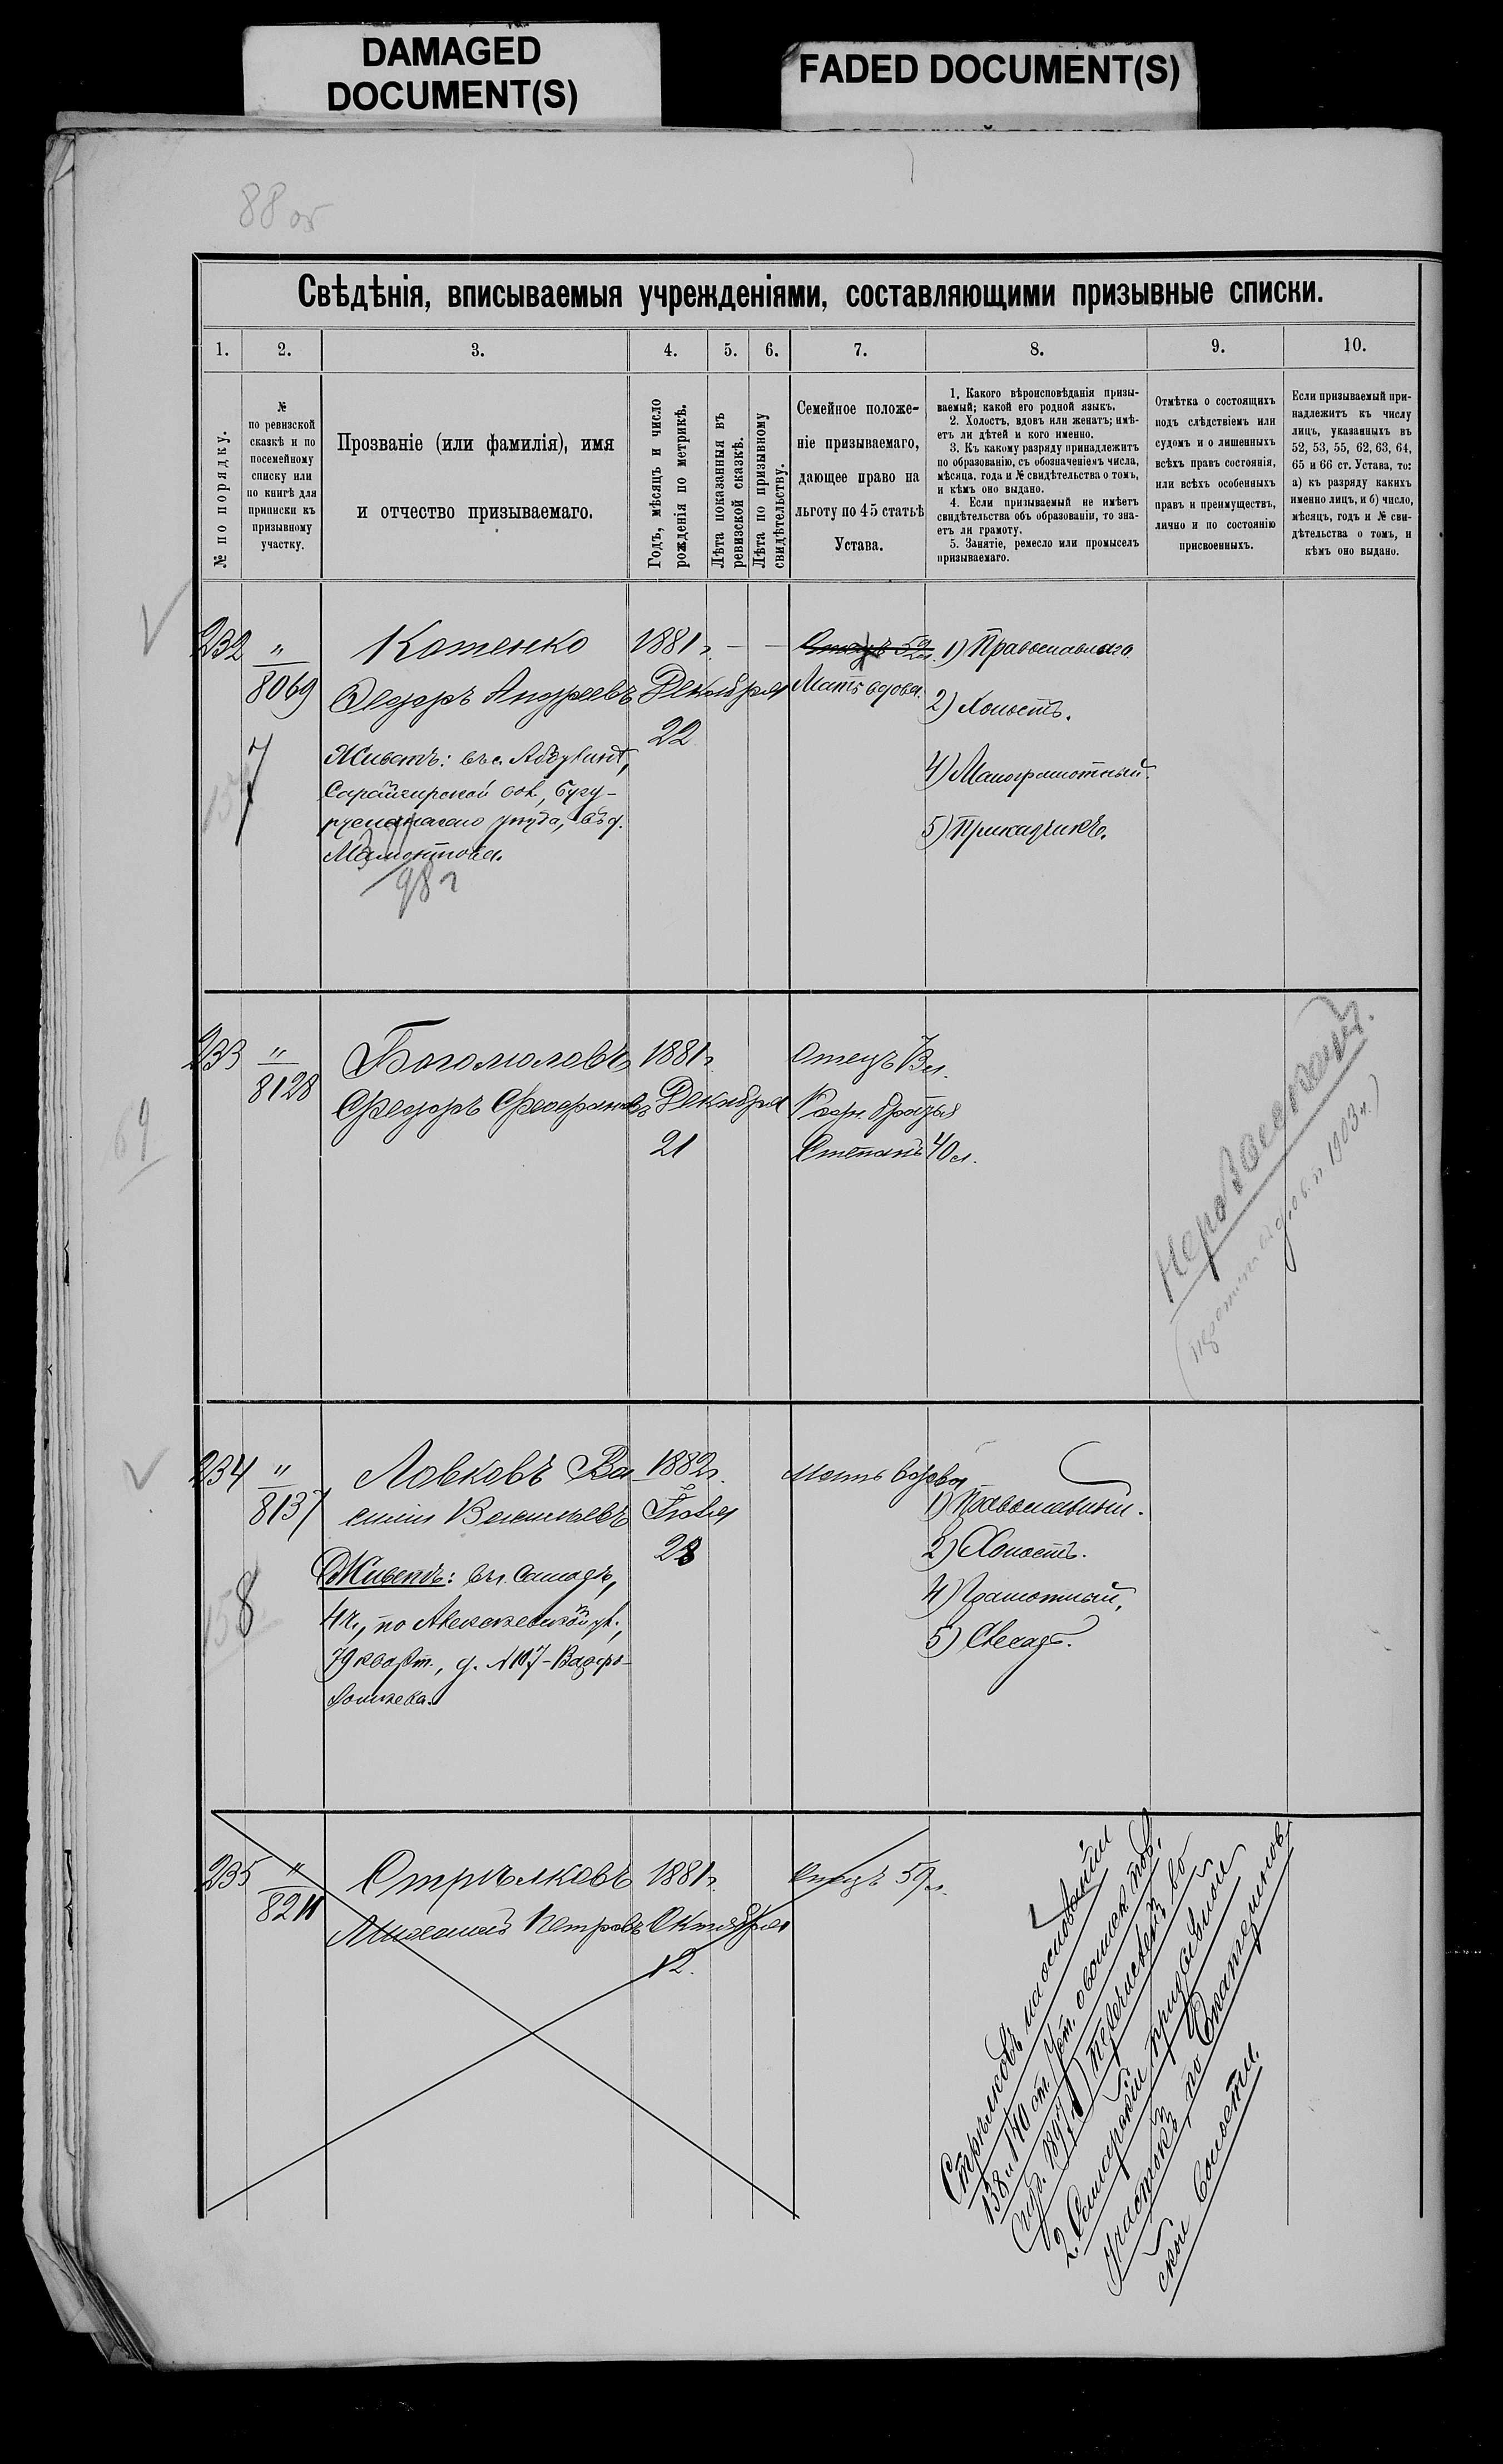 DAMAGED
DOCUMENT(S)
FADED DOCUMENT(S)
88 об
Свѣдѣнія, вписываемыя учрежденіями, составляющими призывные списки.
1.
2.
3.
4.
5.
6.
7.
8.
9.
10.
№ по порядку.
№
по ревизской
сказкѣ и по
посемейному
списку или
по книгѣ для
приписки къ
призывному
участку.
Прозваніе (или фамилія), имя
и отчество призываемаго.
Годъ, мѣсяцъ и число
рожденія по метрикѣ.
Лѣта показанныя въ
ревизской сказкѣ.
Лѣта по призывному
свидѣтельству.
Семейное положе-
ніе призываемаго,
дающее право на
льготу по 45 статьѣ
Устава.
1. Какого вѣроисповѣданія призы-
ваемый; какой его родной языкъ.
2. Холостъ, вдовъ или женатъ; имѣ-
етъ ли дѣтей и кого именно.
3. Къ какому разряду принадлежитъ
по образованію, съ обозначеніемъ числа,
мѣсяца, года и № свидѣтельства о томъ,
и кѣмъ оно выдано.
4. Если призываемый не имѣетъ
свидѣтельства объ образованіи, то зна-
етъ ли грамоту.
5. Занятіе, ремесло или промыселъ
призываемаго.
Отмѣтка о состоящихъ
подъ слѣдствіемъ или
судомъ и о лишенныхъ
всѣхъ правъ состоянія,
или всѣхъ особенныхъ
правъ и преимуществъ,
лично и по состоянію
присвоенныхъ.
Если призываемый при-
надлежитъ къ числу
лицъ, указанныхъ въ
52, 53, 55, 62, 63, 64,
65 и 66 ст. Устава, то:
а) къ разряду какихъ
именно лицъ, и б) число,
мѣсяцъ, годъ и № сви-
дѣтельства о томъ, и
кѣмъ оно выдано.
232
"
8069
7
157
Котенко
Федоръ Андреевъ
Живетъ: въ с.
Сарайгирской вол., Бугу-
русланскаго уѣзда, въ д.
Мамонтова.
98 г
1881 г.
Декабря
22
— —
Отецъ 52 л.
Мать вдова.
1) Православнаго
2) Холостъ.
4) Малограмотный.
5) Приказчикъ.
233
"
8128
69
Богомоловъ
Федоръ
1881 г.
Декабря
21
Отецъ
Родн. братья
Степанъ 40 л.
1903 г.)
234
"
8137
8
158
Ловковъ Ва
силій Васильевъ
Живетъ: въ г. Самарѣ,
4 ч., по Алексѣевской ул.,
79 кварт., д. № 107-
1882 г.
Іюля
28
Мать вдова
1) Православный.
2) Холостъ.
4) Грамотный,
5) Слесарь.
235
"
8211
Стрѣлковъ
Михаилъ Петровъ
1881 г.
Октября
12.
Отецъ 59 л.
Стрѣлковъ на основаніи
138 и 140 ст. Уст. о воинск. пов.
(изд. 1897 г.) перечисленъ во
2 Самарскій призывной
участокъ, по
ской волости.